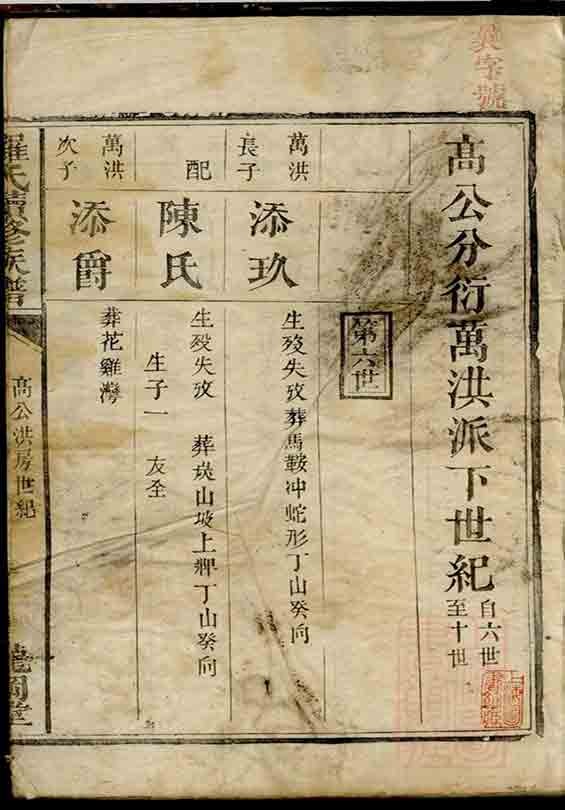 字號
高公分衍萬洪派下世紀
自六世
至十世
第六世
萬洪
長子
添玖
生歿失攷葬馬鞍冲蛇形丁山癸向
配
陳氏
生歿失攷 葬茣山坡上牌丁山癸向
生子一 友全
萬洪
次子
添爵
葬花雞灣
羅氏續修族譜
高公洪房世紀